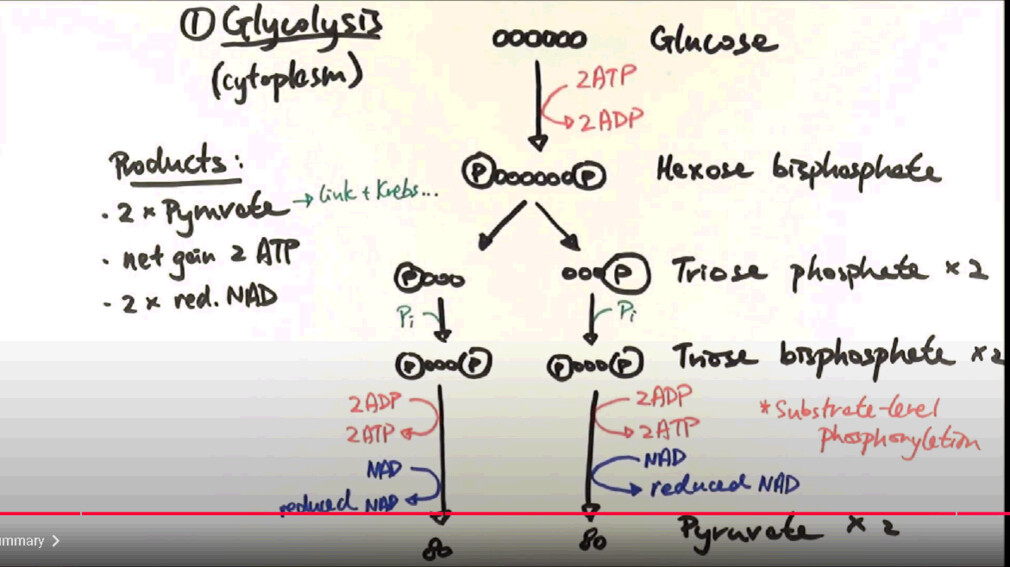 ① Glycolysis
(cytoplasm)
Glucose
2ATP
2ADP
P P
Hexose bisphosphate
Products:
• 2 x Pyruvate → Link + Krebs...
• net gain 2 ATP
• 2 x red. NAD
P P
Triose phosphate x 2
Pi Pi
P P P P
Triose bisphosphate x 2
2ADP 2ADP
2ATP 2ATP
* Substrate-level
phosphorylation
NAD NAD
reduced NAD reduced NAD
Pyruvate x 2
ummary >